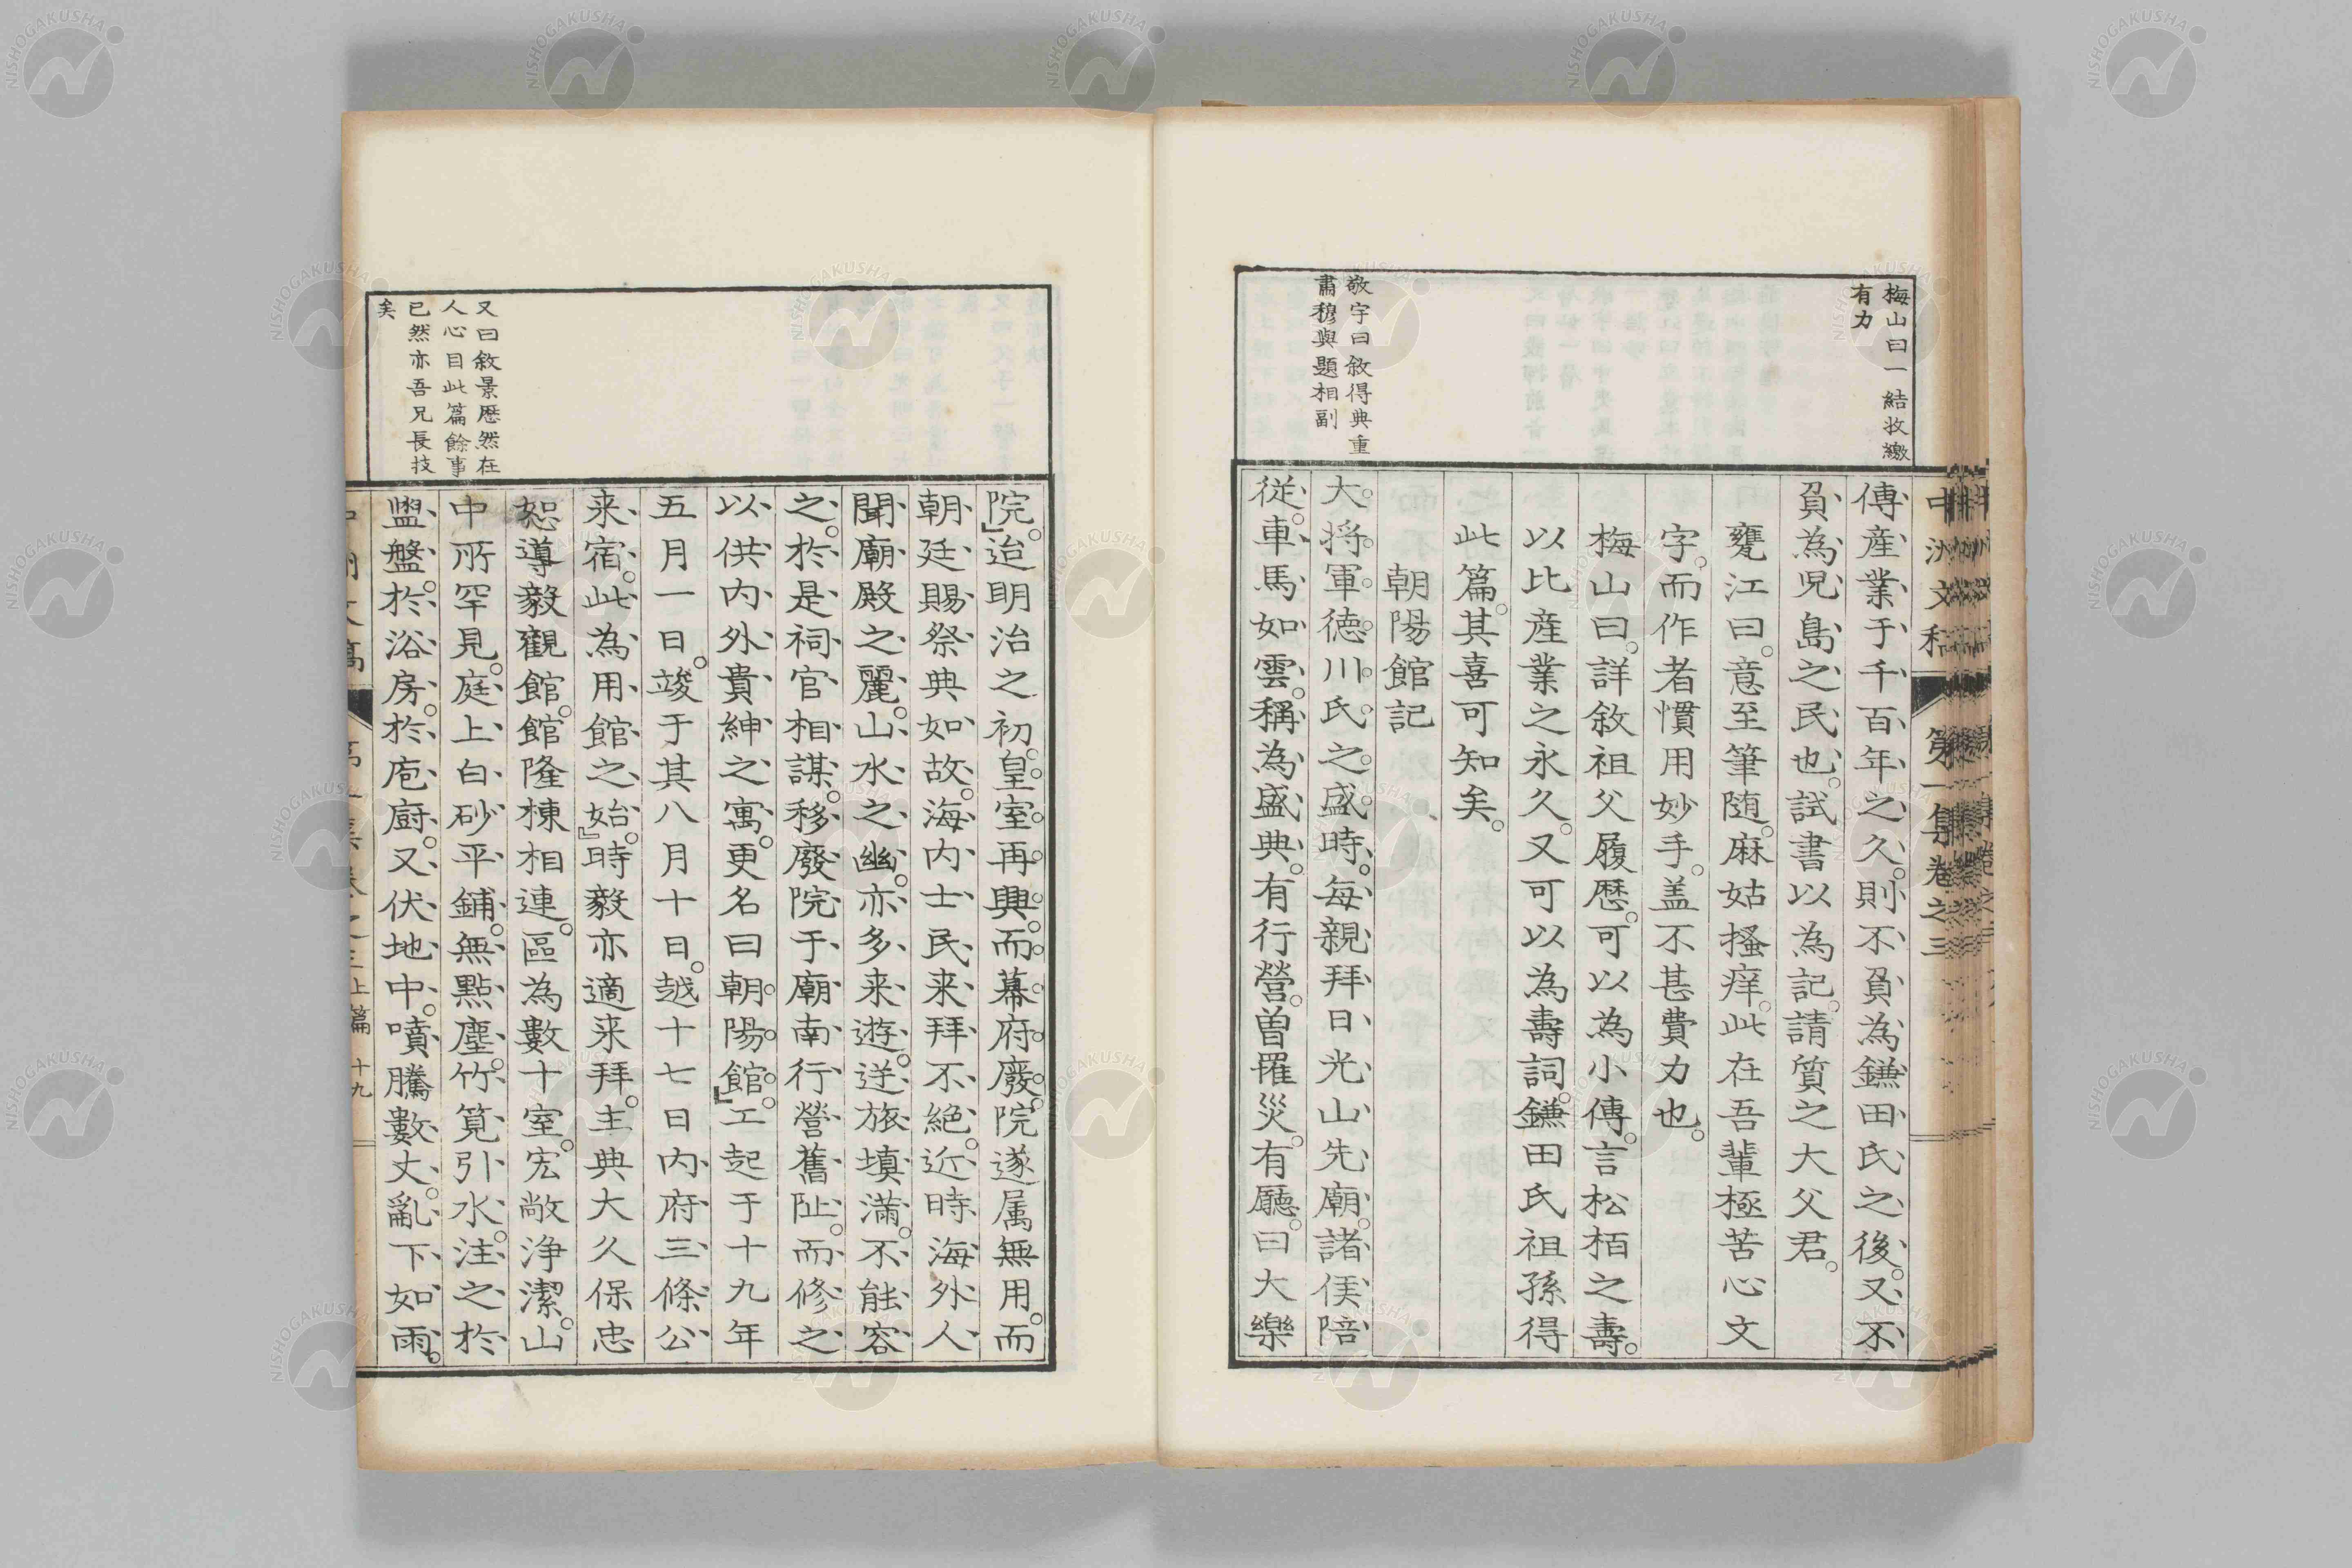 梅山曰一結收繳
有力
中洲文稿 第一集卷之三
傳產業于千百年之久。則不負為鎌田氏之後。又不
負為兒島之民也。試書以為記。請質之大父君。
甕江曰。意至筆随。麻姑搔痒。此在吾輩極苦心文
字。而作者慣用妙手。盖不甚費力也。
梅山曰。詳敘祖父履歷。可以為小傳。言松栢之壽。
以比產業之永久。又可以為壽詞。鎌田氏祖孫得
此篇。其喜可知矣。
朝陽館記
敬宇曰敘得典重
肅穆與題相副
大將軍德川氏之盛時。每親拜日光山先廟。諸侯陪
從。車馬如雲。稱為盛典。有行營。曽罹災。有廳。曰大樂
院。』迨明治之初。皇室再興。而幕府廢。院遂属無用。而
朝廷賜祭典如故。海内士民来拜不絕。近時海外人
聞廟殿之麗。山水之幽。亦多来遊。逆旅填滿。不能容
之。於是祠官相謀。移廢院于廟南行營舊阯。而修之
以供内外貴紳之寓。更名曰朝陽館。』工起于十九年
五月一日。竣于其八月十日。越十七日内府三條公
来宿。此為用館之始。』時毅亦適来拜。主典大久保忠
恕導毅觀館。館隆棟相連。區為數十室。宏敞浄潔。山
中所罕見。庭上白砂平鋪。無點塵。竹筧引水。注之於
盥盤。於浴房。於庖廚。又伏地中。噴騰數丈。亂下如雨。
又曰敘景歷然在
人心目此篇餘事
已然亦吾兄長技
矣
上篇 十九